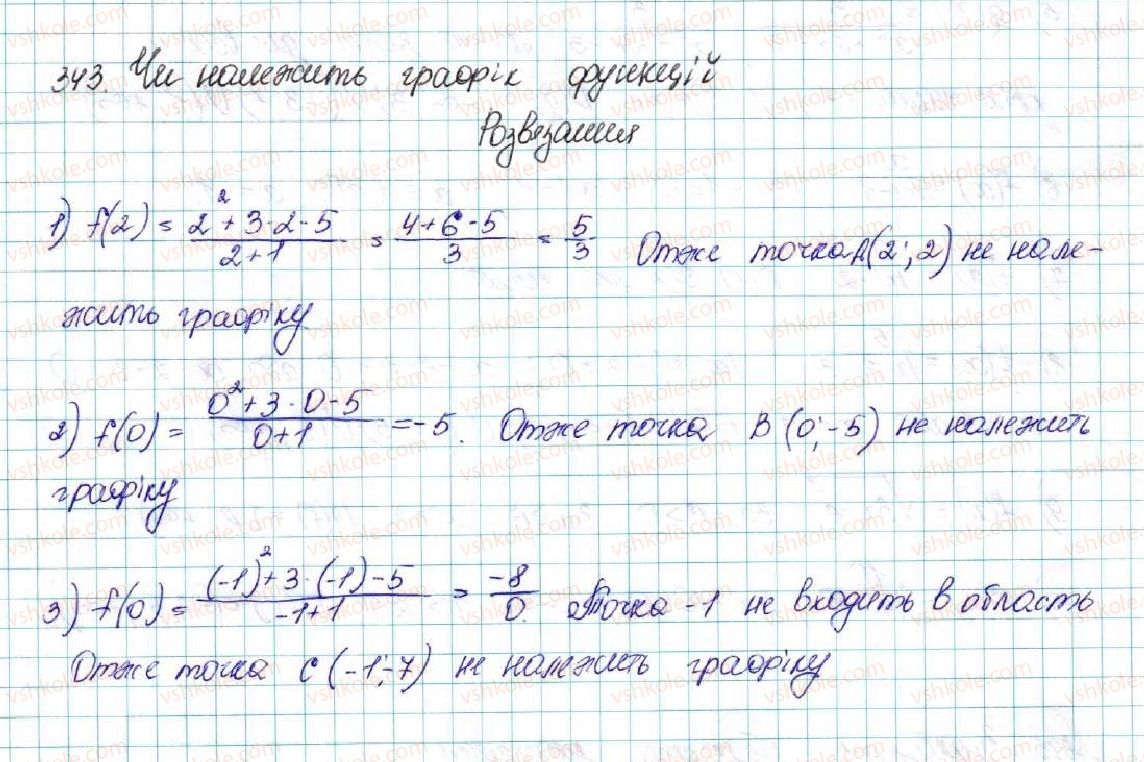 343. Чи належить графік функцій
Розвязання
1) f(2) = (2² + 3·2 - 5)/(2+1) = (4+6-5)/3 = 5/3 Отже точка A(2; 2) не нале-
жить графіку
2) f(0) = (0² + 3·0 - 5)/(0+1) = -5. Отже точка B (0; -5) не належить
графіку
3) f(0) = ((-1)² + 3·(-1) - 5)/(-1+1) = -8/0. Точка -1 не входить в область
Отже точка C (-1; -7) не належить графіку